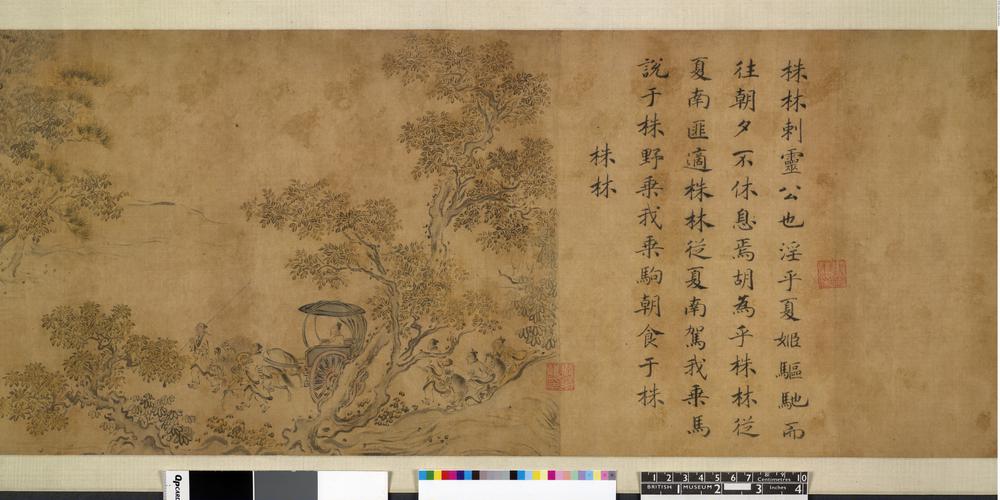 株林刺靈公也淫乎夏姬驅馳而
往朝夕不休息焉胡為乎株林從
夏南匪適株林從夏南駕我乗馬
說于株野乗我乗駒朝食于株
株林
1 2 3 4 5 6 7 8 9 10 Centimetres
BRITISH 1 MUSEUM 2 3 Inches 4